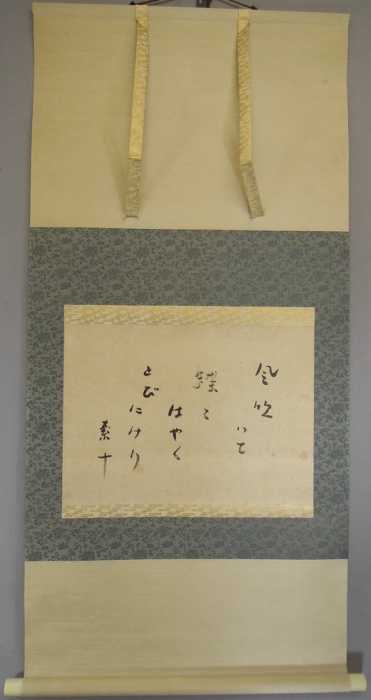 風吹いて
蝶々はやく
とびにけり
素十